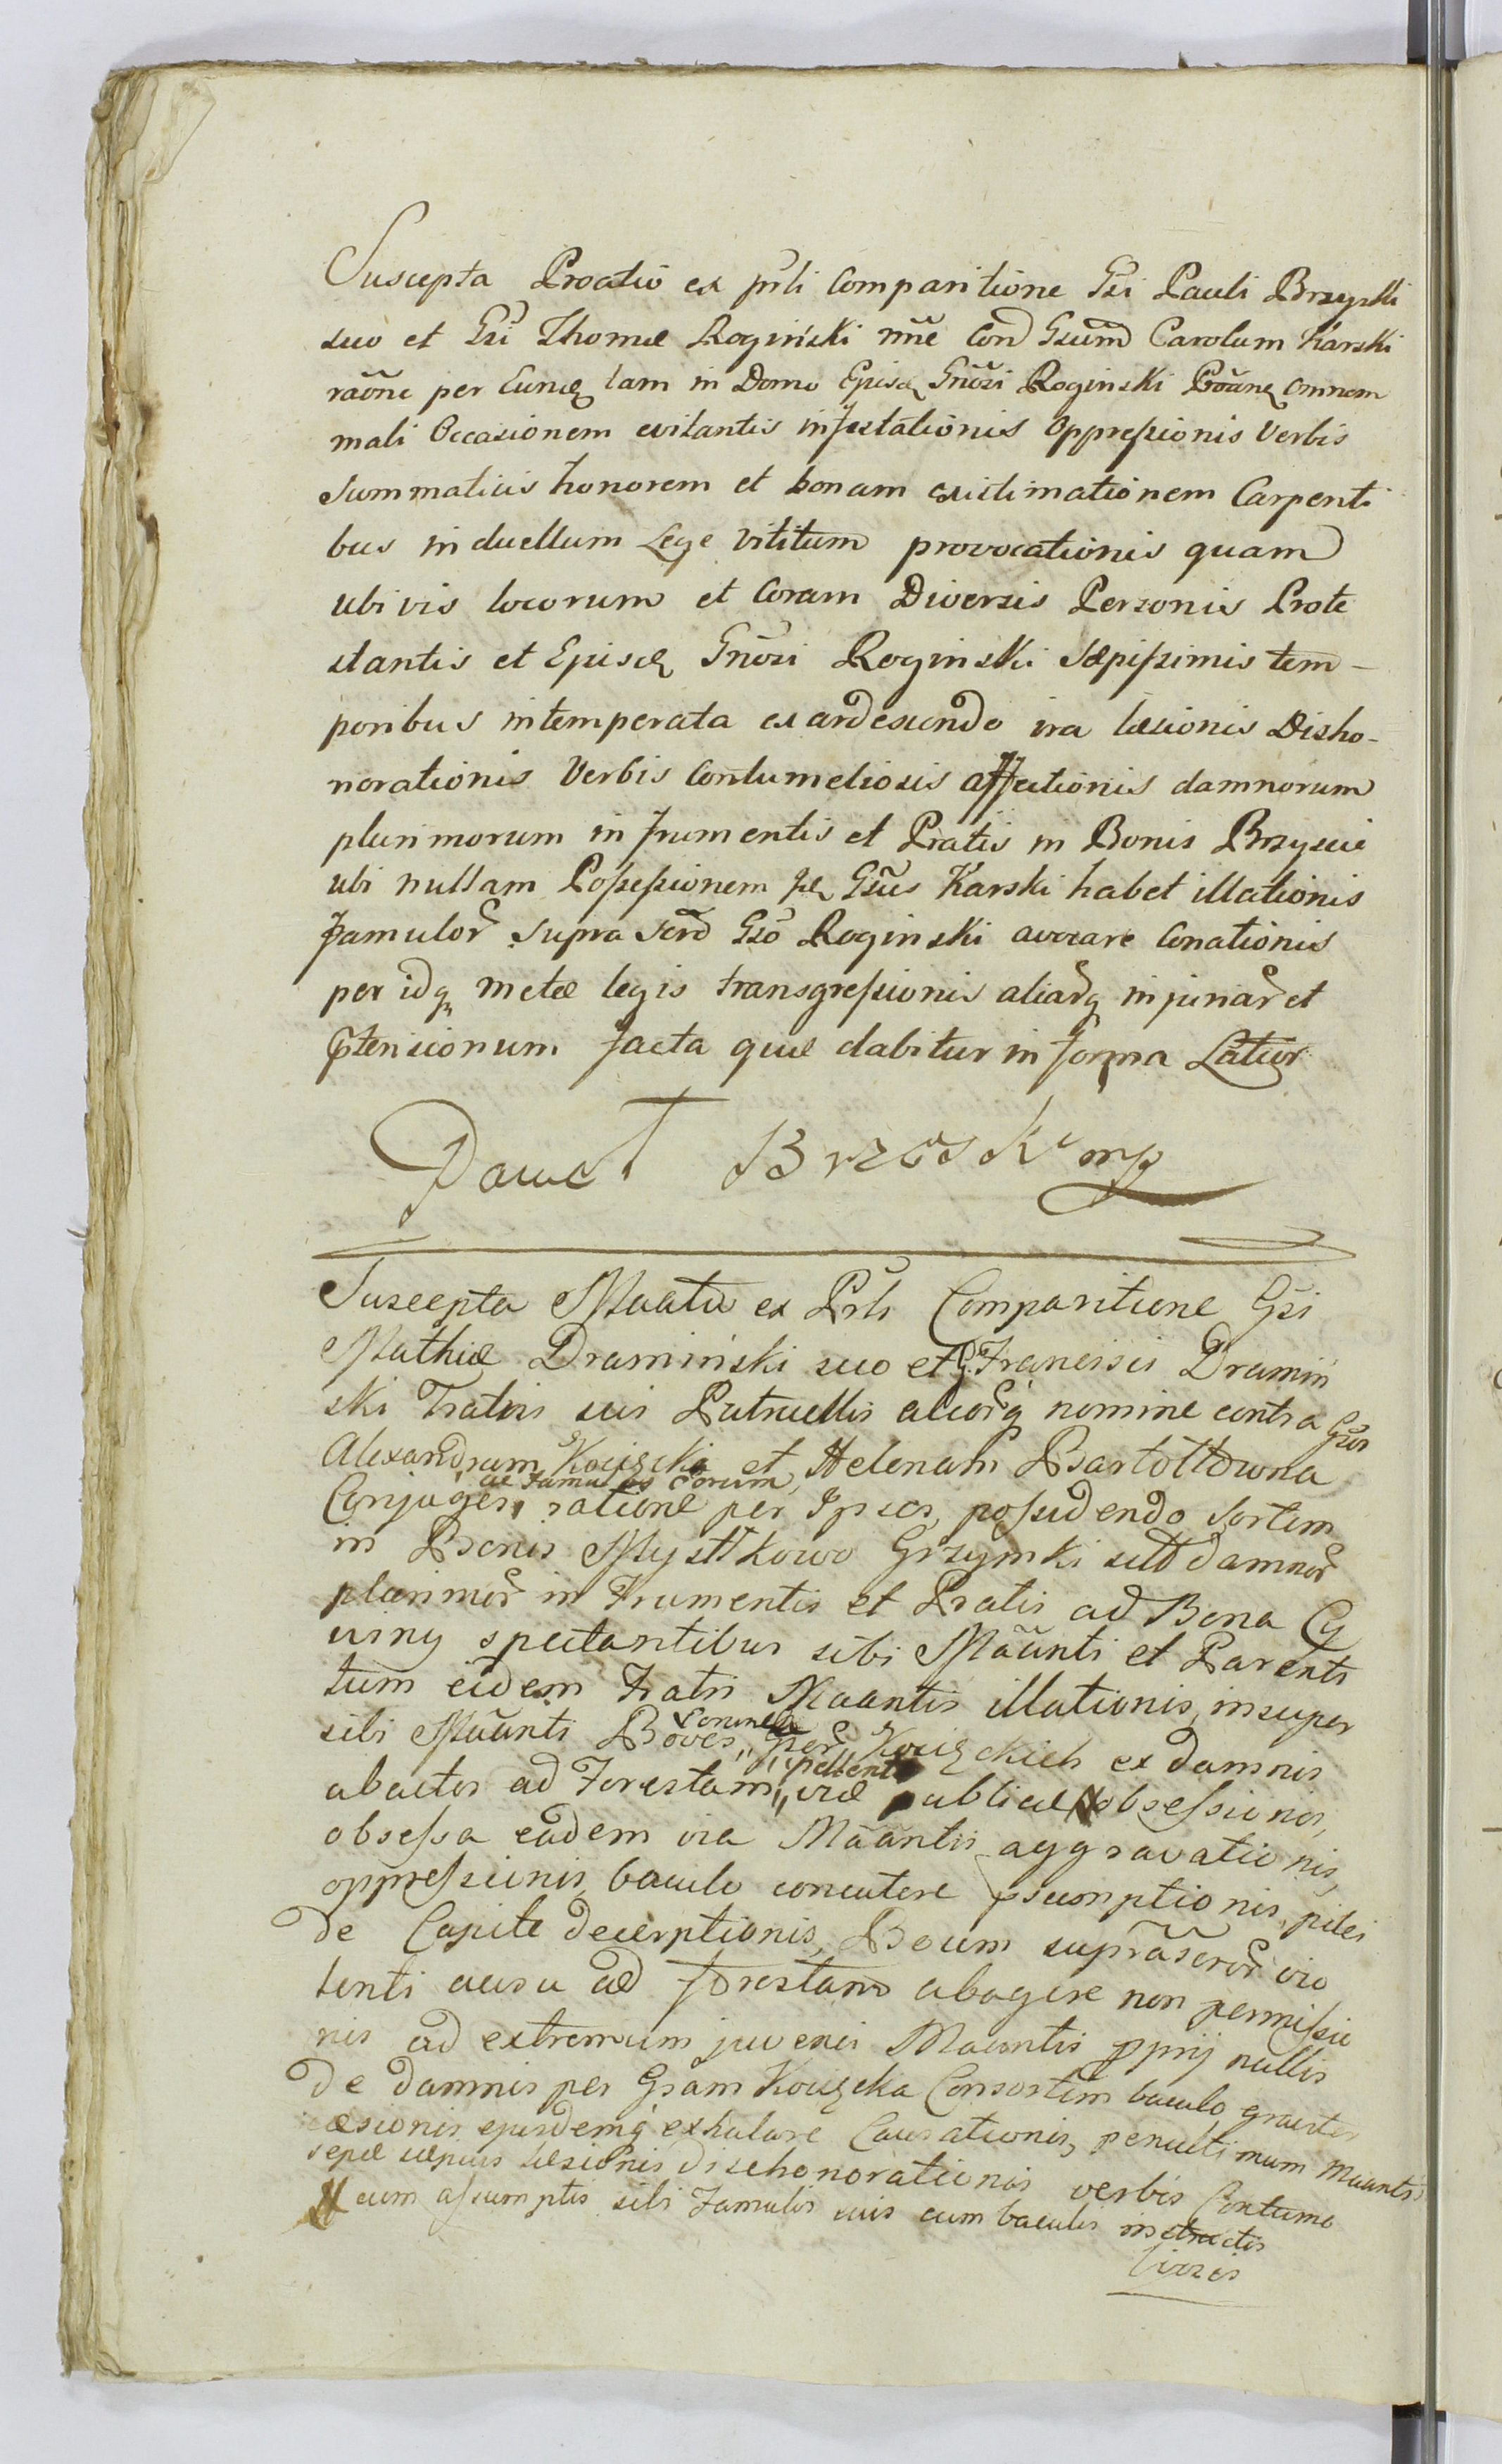 Suscepta Prõatio ex prñti Comparitione Gsi Pauli Brzyski
suo et Gsi Thomæ Roginski nñe Con Gsum Carolum Karski
raõne per Eunq tam in Domo Episcq Gnõsi Roginski Prõanq omnem
mali Occasionem evitantis infestationis Oppressionis Verbis
Summaticis honorem et bonam existimationem Carpenti
bus in duellum Lege vititum provocationis quam
ubi vis locorum et Coram Diversis Personis Prote
stantis et Episcq Gnõsi Roginski Sæpissimis tem-
poribus intemperata exardescendo ira læsionis Disho-
norationis Verbis Contumeliosis affectionis damnorum
plurimorum in frumentis et Pratis in Bonis Brzyscie
ubi nullam Possessionem pq Gsus Karski habet illationis
famulor supra scrõ Gso Roginski avocare Conationis
per idq metæ legis transgressionis aliarq injuriar et
ptensionum facta quæ dabitur in forma Latior
Paweł Brzoski mp
Suscepta Maatio ex Prñti Comparitione Gsi
Mathiæ Dramiński suo et G. Francisci Dramiń
ski Fratris sui Patruellis aliorq nomine contra Gsos
Alexandrum et Helenam Bartołtowna
ac Famulos eorum
Conjuges, ratione per Ipsos, possidendo Sortem
in Bonis Mystkowo Grzymki damnor
plurimor in Frumentis et Pratis ad Bona Cy
spectantibus sibi Mãanti et Parenti
tum eidem Fratri Maantis illationis, insuper
sibi Mãanti Boves, ex damnis
abactos ad Forestam, viæ publicæ obsessionis,
obsessa eadem via Mãantis aggravationis,
oppressionis, baculo concutere psumptionis, pilei
de Capite decerptionis, Boum suprãscror vio
lenti ausu ad forestam abagere non permissio
nis ad extremum juvenci Maantis pprij nullis
de damnis per Gsam Consortem baculo graviter
læsionis, ejusdemq exhalare Causationis, penultimum Maantis
sepe sæpius læsionis dishonorationis verbis Contume
cum assumptis sibi Famulis suis cum baculis instructis